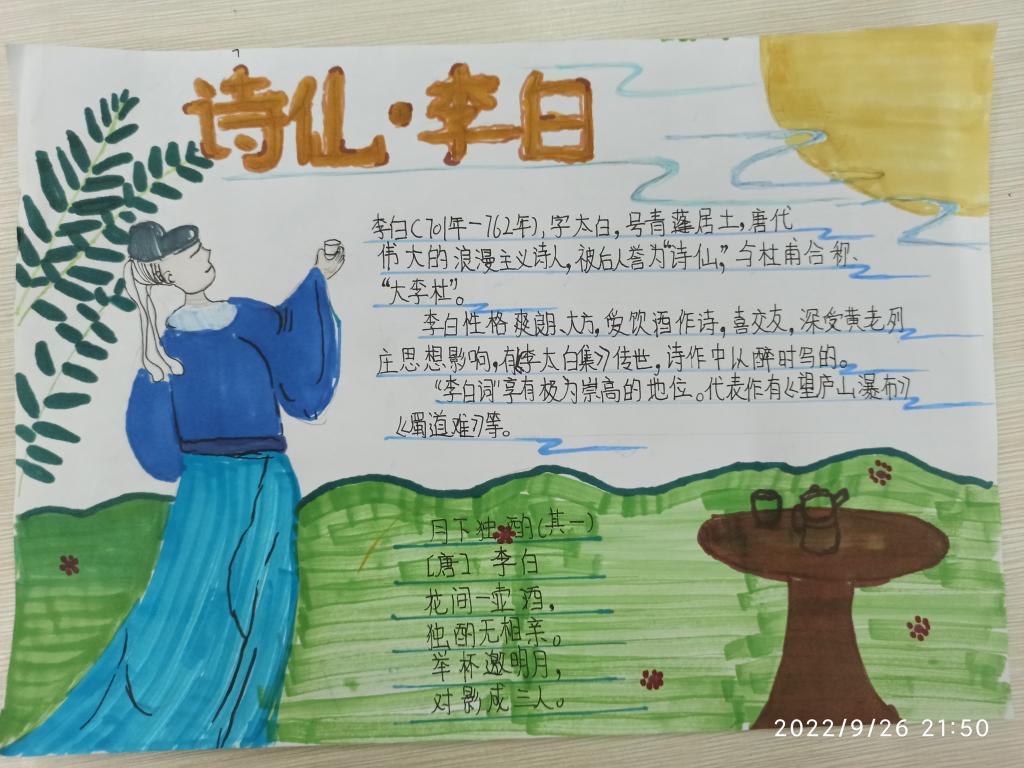 诗仙·李白
李白(701年-762年),字太白,号青莲居士,唐代
伟大的浪漫主义诗人,被后人誉为“诗仙”,与杜甫合称、
“大李杜”。
李白性格爽朗、大方,爱饮酒作诗,喜交友,深受黄老列
庄思想影响,有《李太白集》传世,诗作中以醉时写的。
“李白词”享有极为崇高的地位。代表作有《望庐山瀑布》
《蜀道难》等。
月下独酌(其一)
[唐] 李白
花间一壶酒,
独酌无相亲。
举杯邀明月,
对影成三人。
2022/9/26 21:50